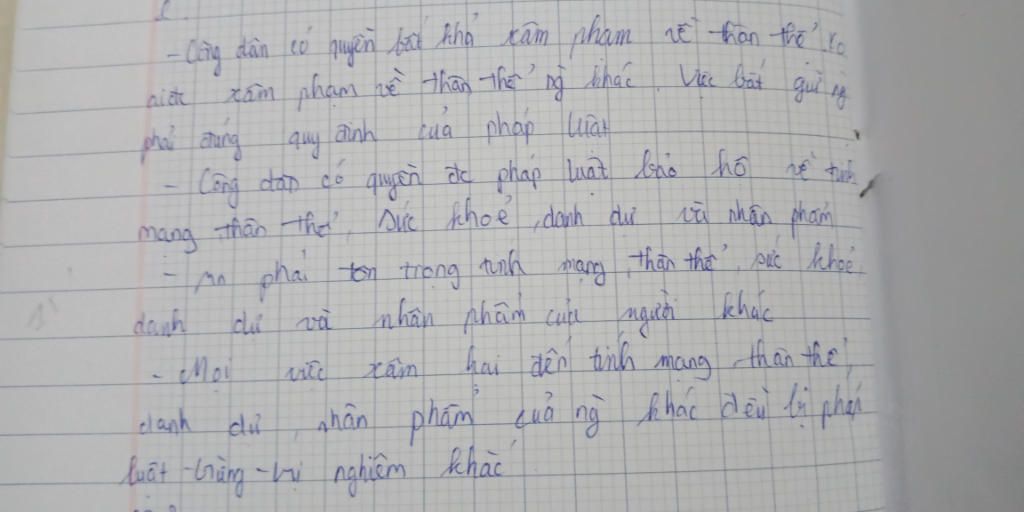 - Công dân có quyền bất khả xâm phạm về thân thể. Ko
xâm phạm về thân thể ng khác. Việc bắt giữ ng
phải đúng quy định của pháp luật
- Công dân có quyền đc pháp luật bảo hộ về tính
mạng thân thể, sức khoẻ, danh dự và nhân phẩm
- phải tôn trọng tính mạng, thân thể, sức khoẻ,
danh dự và nhân phẩm của người khác
- Mọi việc xâm hại đến tính mạng thân thể,
danh dự, nhân phẩm của ng khác đều bị pháp
luật trừng trị nghiêm khắc